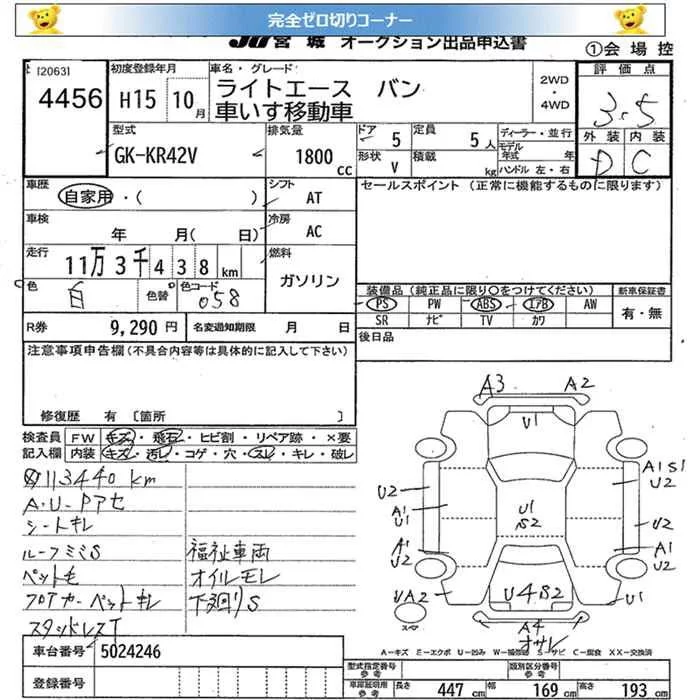 完全ゼロ切りコーナー
JU宮城 オークション出品申込書
①会場控
[2063]
4456
初度登録年月
H15 10月
車名・グレード
ライトエース バン
車いす移動車
2WD
・
4WD
評価点
3.5
外装 内装
D C
型式
GK-KR42V
排気量
1800
CC
ドア 5
定員 5人
形状 V
積載 kg
ディーラー・並行
モデル年式 年
ハンドル 左・右
車歴
自家用・( )
シフト
AT
セールスポイント (正常に機能するものに限ります)
車検
年 月( 日)
冷房
AC
走行
11万3千438km
燃料
ガソリン
色
白
色替
色コード
058
装備品 (純正品に限り○をつけてください)
新車保証書
PS PW ABS エアB AW
SR ナビ TV カワ
有・無
R券 9,290円
名変通知期限 月 日
後日品
注意事項申告欄(不具合内容等は具体的に記入して下さい)
修復歴 有 〔箇所 〕
検査員
記入欄
FW キズ・飛石・ヒビ割・リペア跡・×要
内装 キズ・汚レ・コゲ・穴・スレ・キレ・破レ
113440km
シートキレ
ルーフミミS
福祉車両
ペット毛
オイルモレ
フロアカーペットキレ
下廻りS
スタッドレスT
A3
A2
U1
A1 S1
U2
U2
A1
U1
U1
S2
U2
A1
U2
A1
U2
UA2
U4 S2
U1
A4
オサレ
スペア
A-キズ E-エクボ U-凹み W-補修跡 S-サビ C-腐食 XX-交換済
車台番号 5024246
登録番号
型式指定番号
参考
類別区分番号
参考
車庫証明用
参考
長さ 447 cm
幅 169 cm
高さ 193 cm